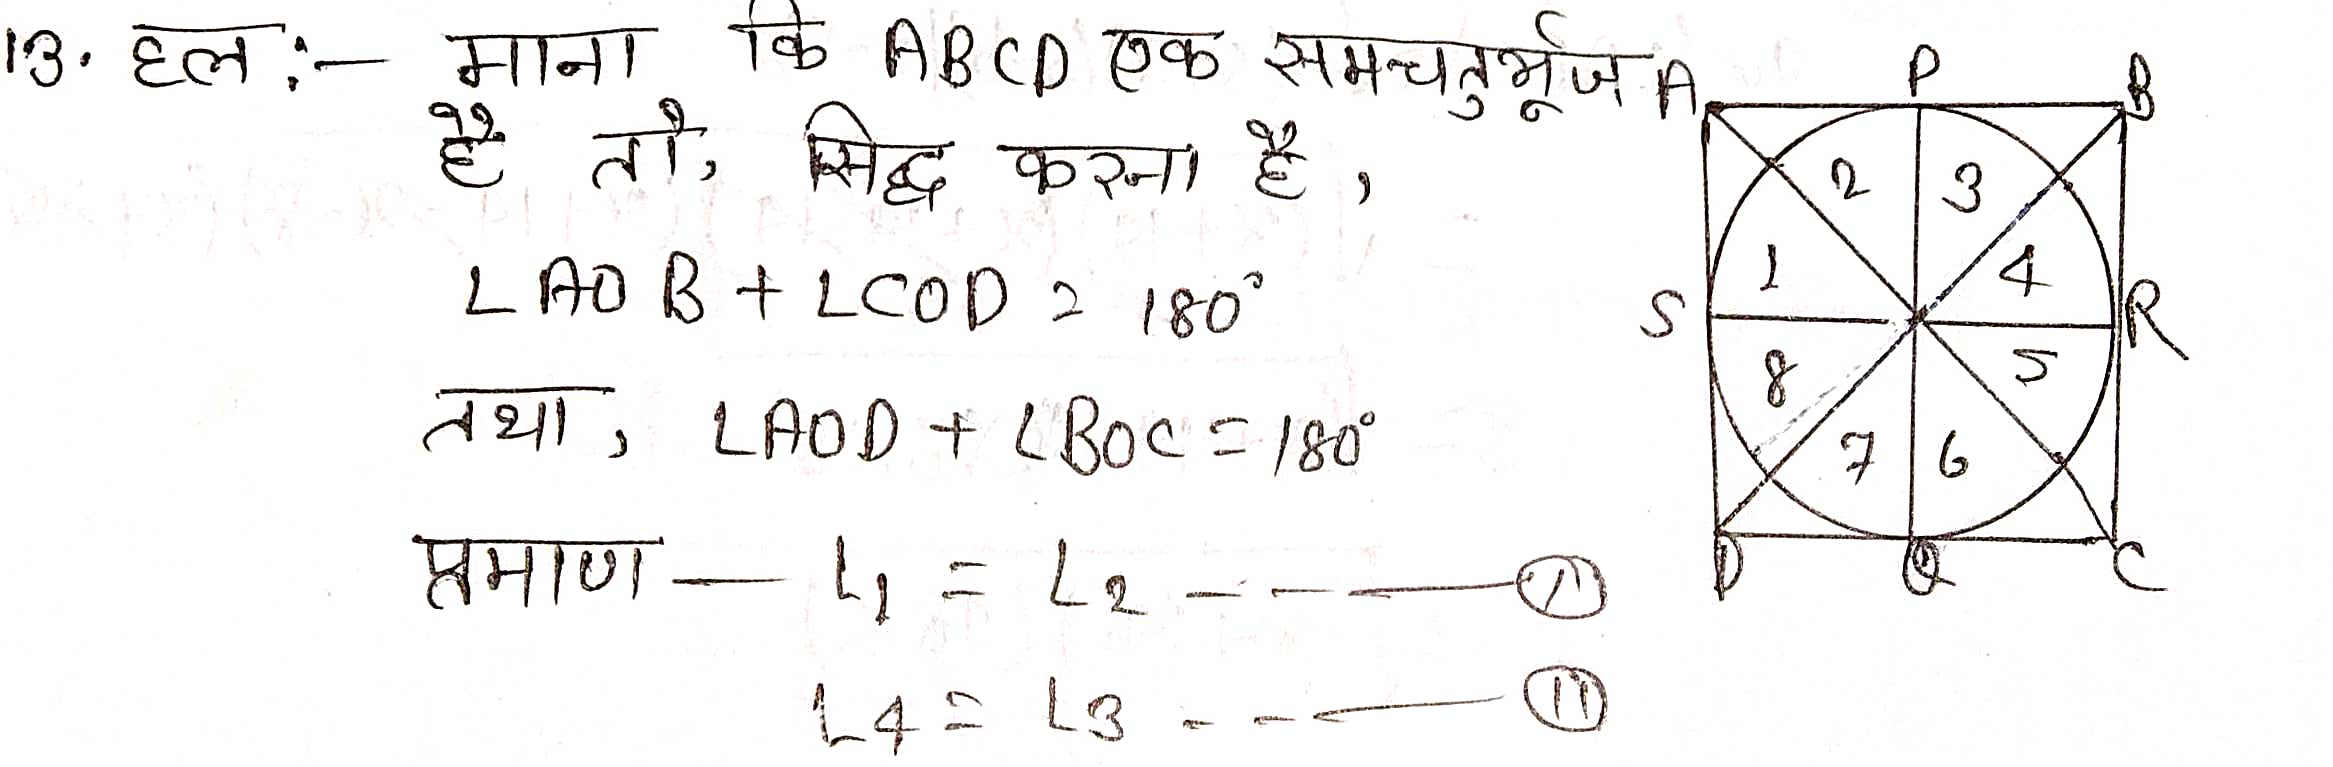 13. हल :- माना कि ABCD एक समचतुर्भूज
है तो, सिद्ध करना है,
∠AOB + ∠COD = 180°
तथा, ∠AOD + ∠BOC = 180°
प्रमाण — ∠1 = ∠2 - - — (i)
∠4 = ∠3 - - — (ii)
A P B
2 3
1 4
S R
8 5
7 6
D Q C